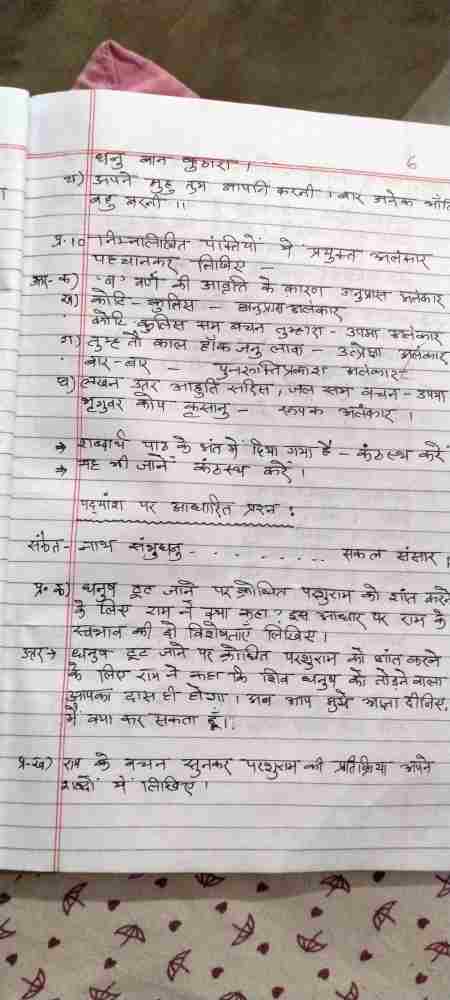 धनु बान कुठारा ।
6
घ) अपने मुहु तुम आपनि करनी । बार अनेक भाँति
बहु बरनी ।।
प्र.10 निम्नलिखित पंक्तियों में प्रयुक्त अलंकार
पहचानकर लिखिए –
क) 'ब' वर्ण की आवृत्ति के कारण अनुप्रास अलंकार
ख) कोटि-कुलिस – अनुप्रास अलंकार
कोटि-कुलिस सम बचन तुम्हारा - उपमा अलंकार
ग) तुम्ह तौ काल हाँक जनु लावा – उत्प्रेक्षा अलंकार
बार-बार – पुनरुक्तिप्रकाश अलंकार
घ) लखन उतर आहुति सरिस, जल सम बचन - उपमा
भृगुबर कोप कृसानु – रूपक अलंकार ।
→ शब्दार्थ पाठ के अंत में दिया गया है – कंठस्थ करें
→ यह भी जानें कंठस्थ करें ।
पद्यांश पर आधारित प्रश्न :
संकेत- नाथ संभुधनु - . . . . . . . . . सकल संसार ।
प्र. क) धनुष टूट जाने पर क्रोधित परशुराम को शांत करने
के लिए राम ने क्या कहा? इस आधार पर राम के
स्वभाव की दो विशेषताएँ लिखिए ।
उत्तर→ धनुष टूट जाने पर क्रोधित परशुराम को शांत करने
के लिए राम ने कहा कि शिव धनुष को तोड़ने वाला
आपका दास ही होगा । अब आप मुझे आज्ञा दीजिए,
मैं क्या कर सकता हूँ।
प्र-ख) राम के वचन सुनकर परशुराम की प्रतिक्रिया अपने
शब्दों में लिखिए ।